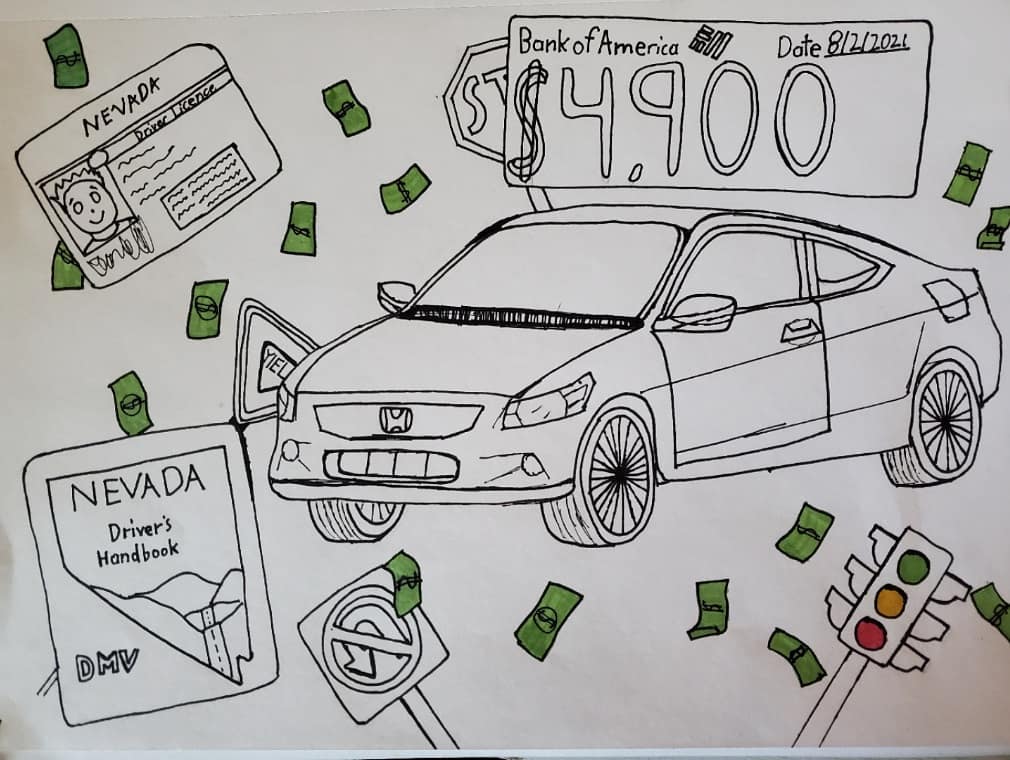 NEVADA
Driver Licence
ST
Bank of America Date 8/2/2021
$4,900
YIE
NEVADA
Driver's
Handbook
DMV